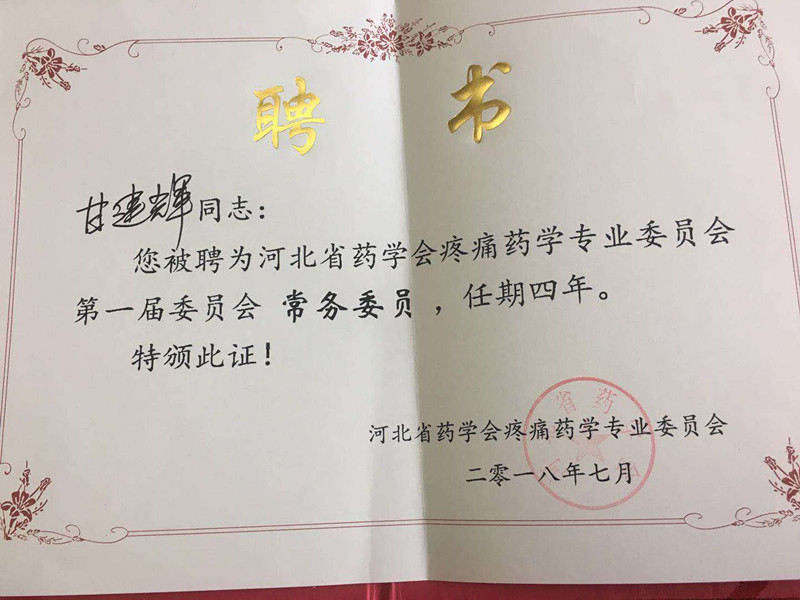 聘书
甘建辉同志：
您被聘为河北省药学会疼痛药学专业委员会
第一届委员会 常务委员，任期四年。
特颁此证！
省药
河北省药学会疼痛药学专业委员会
二零一八年七月